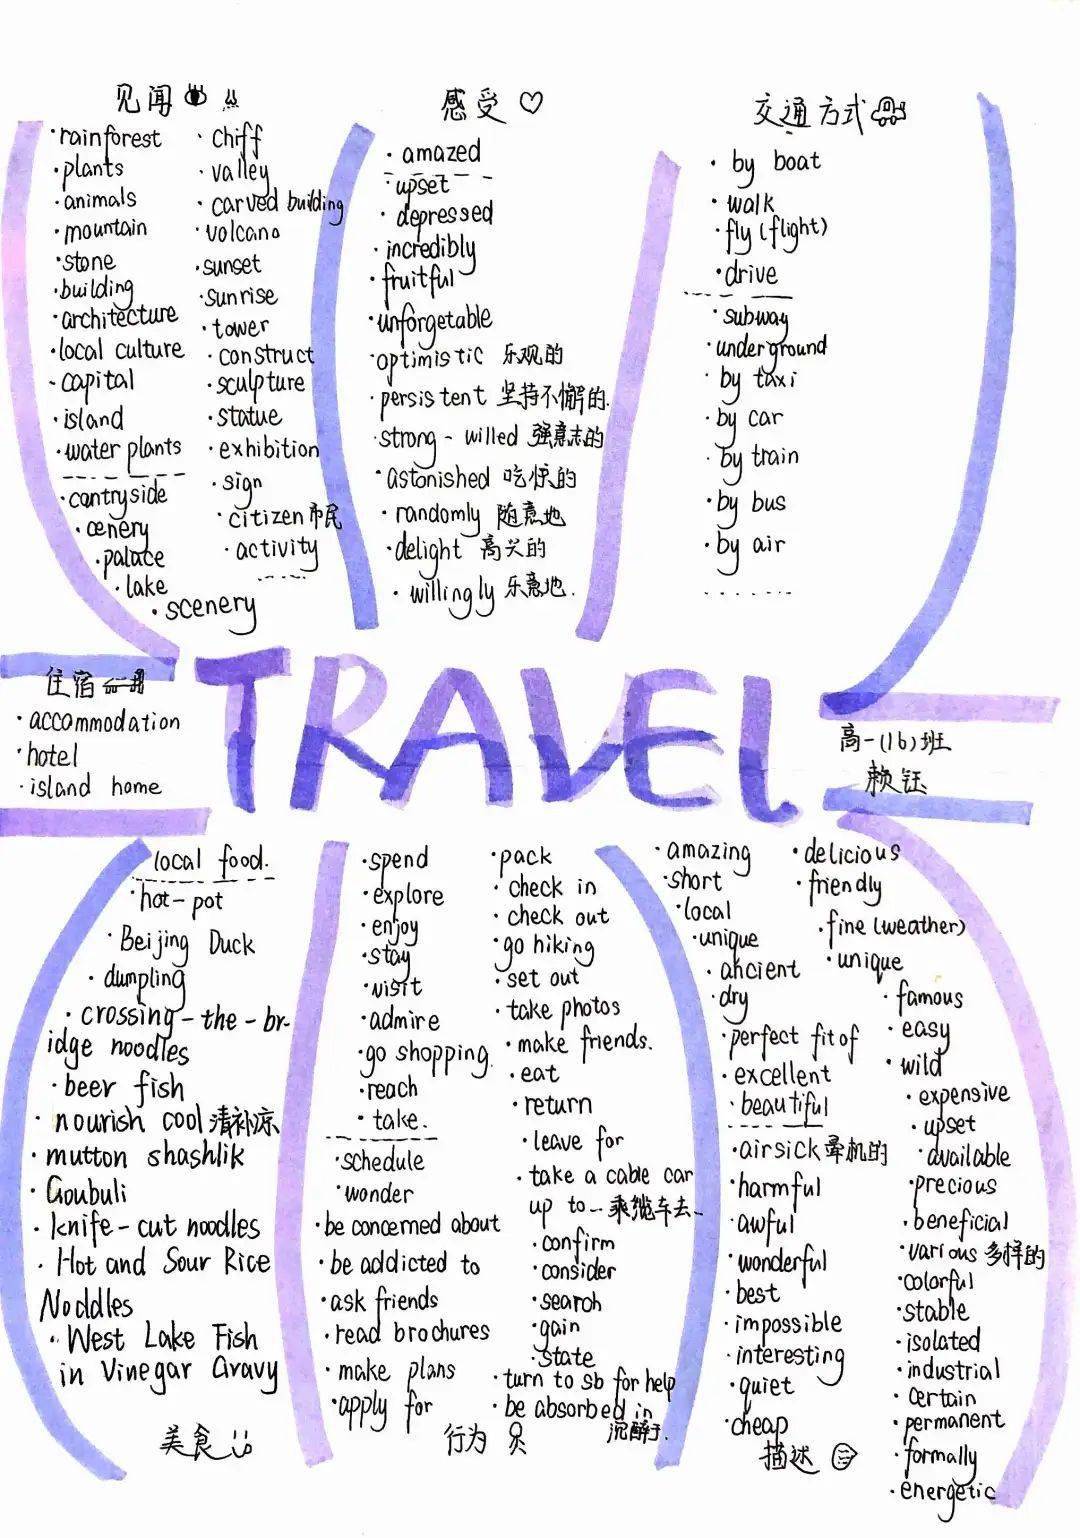 见闻
· rainforest
· plants
· animals
· mountain
· stone
· building
· architecture
· local culture
- capital
· island
· water plants
· cantryside
· cenery
· palace
· lake
· scenery
· chiff
· valley
· carved building
· volcano
· sunset
· sunrise
· tower
· construct
· sculpture
· statue
· exhibition
· sign
· citizen 市民
· activity
感受
· amazed
· upset
· depressed
· incredibly
· fruitful
· unforgetable
· optimistic 乐观的
· persistent 坚持不懈的.
· strong-willed 强意志的
· astonished 吃惊的
· randomly 随意地
· delight 高兴的
· willingly 乐意地.
交通方式
· by boat
· walk
· fly (flight)
· drive
· subway
· underground
· by taxi
· by car
· by train
· by bus
· by air
住宿
· accommodation
· hotel
· island home
TRAVEL
高一(16)班
赖钰
local food.
· hot-pot
· Beijing Duck
· dumpling
· crossing-the-br-
idge noodles
· beer fish
· nourish cool 清补凉
· mutton shashlik
· Goubuli
· knife-cut noodles
· Hot and Sour Rice
Noddles
· West Lake Fish
in Vinegar Gravy
美食
· spend
· explore
· enjoy
· stay
· visit
· admire
· go shopping.
· reach
· take.
· schedule
· wonder
· be concerned about
· be addicted to
· ask friends
· read brochures
· make plans
· apply for
· pack
· check in
· check out
· go hiking
· set out
· take photos
· make friends.
· eat
· return
· leave for
· take a cable car
up to... 乘缆车去...
· confirm
· consider
· search
· gain
· state
· turn to sb for help
· be absorbed in
沉醉于.
行为
· amazing
· short
· local
· unique
· ancient
· dry
· perfect fit of
· excellent
· beautiful
· airsick 晕机的
· harmful
· awful
· wonderful
· best
· impossible
· interesting
· quiet
· cheap
· delicious
· friendly
· fine (weather)
· unique
· famous
· easy
· wild
· expensive
· upset
· available
· precious
· beneficial
· various 多样的
· colorful
· stable
· isolated
· industrial
· certain
· permanent
· formally
· energetic
描述